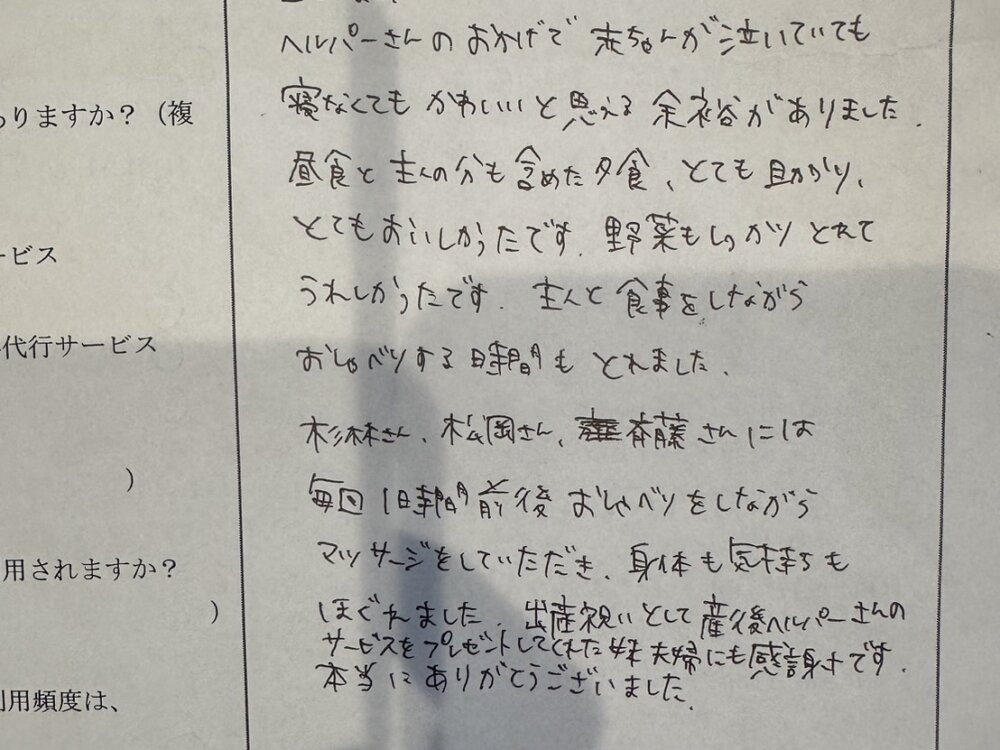 ヘルパーさんのおかげで 赤ちゃんが泣いていても
りますか？（複
寝なくても かわいいと思える 余裕がありました.
昼食と 主人の分も含めた夕食、とても助かり、
とてもおいしかったです. 野菜もしっかり とれて
ービス
うれしかったです. 主人と 食事をしながら
代行サービス
おしゃべりする時間も とれました.
杉林さん、松岡さん、斉藤さんには
)
毎回 1時間前後 おしゃべりをしながら
マッサージをしていただき、身体も気持ちも
用されますか？
)
ほぐれました. 出産祝いとして産後ヘルパーさんの
サービスをプレゼントしてくれた 妹夫婦にも感謝です.
本当に ありがとうございました.
用頻度は、